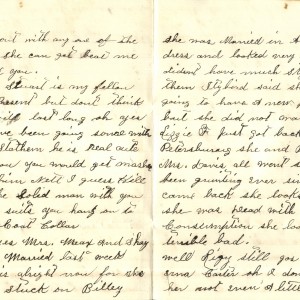 out with any one of the
she can get beat me
you.
Stuart is my fellow
present but dont think
will last long oh yes
ve been going some with
Statham he is real cute
you would get mash
him Nett I guess Will
the Solid man with you
suits you hang on to
Coat Collar
yes Mrs. Meux and Shay
Married last week
is alright now for she
Stuck on Billey
she was Married in A
dress and looked very
dident have much S
them Styford said sh
going to have a new
but she did not wa
Lizzie P just got back
Petersburg she and P
Mrs. Davis all wont s
been grunting ever sin
came back she look
she was dead with
Consumption she loo
terible bad.
well Rigy still goes
Carter oh I don
her not even a litt